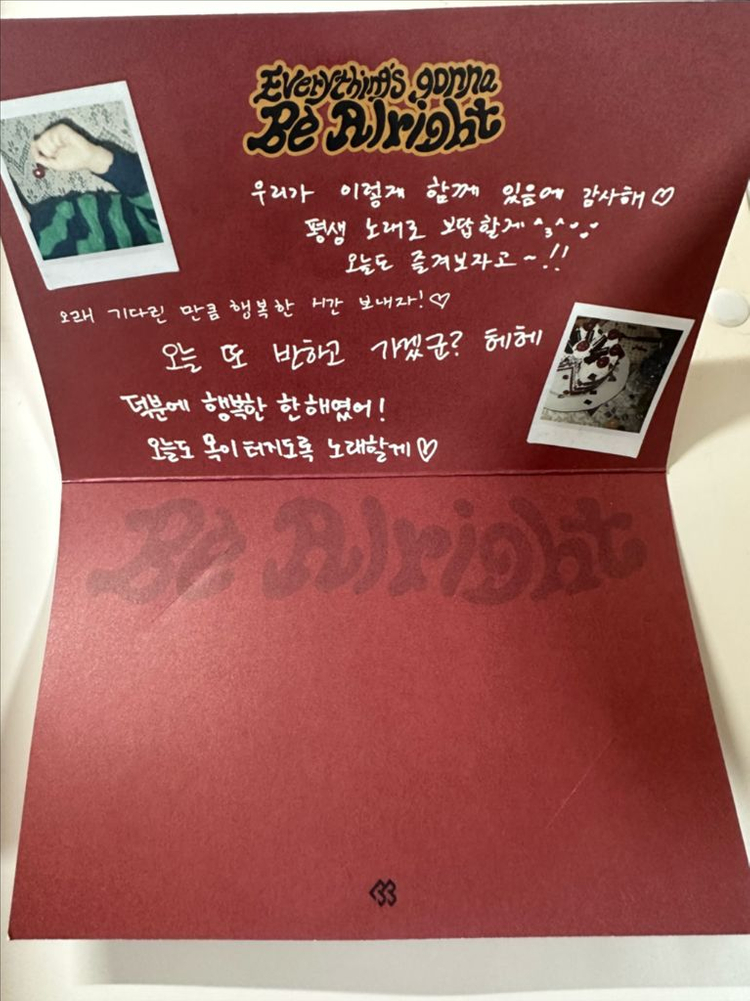 Everything's gonna
Be Alright
우리가 이렇게 함께 있음에 감사해♡
평생 노래로 보답할게 ^3^
오늘도 즐겨보자고~!!
오래 기다린 만큼 행복한 시간 보내자!♡
오늘 또 반하고 가겠군? 헤헤
덕분에 행복한 한 해였어!
오늘도 목이 터지도록 노래할게♡
Be Alright